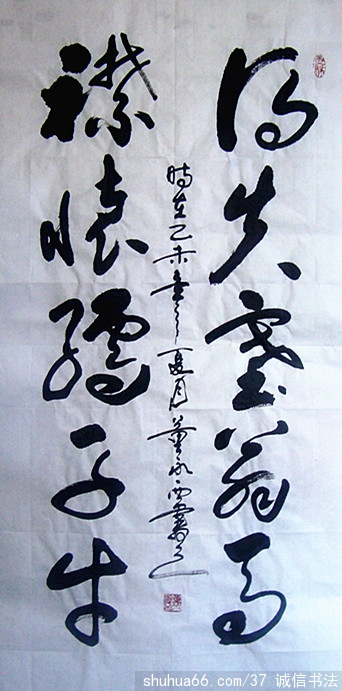 得失塞翁马
襟怀孺子牛
时在乙未年之夏月董永西书
shuhua66.com/37 诚信书法